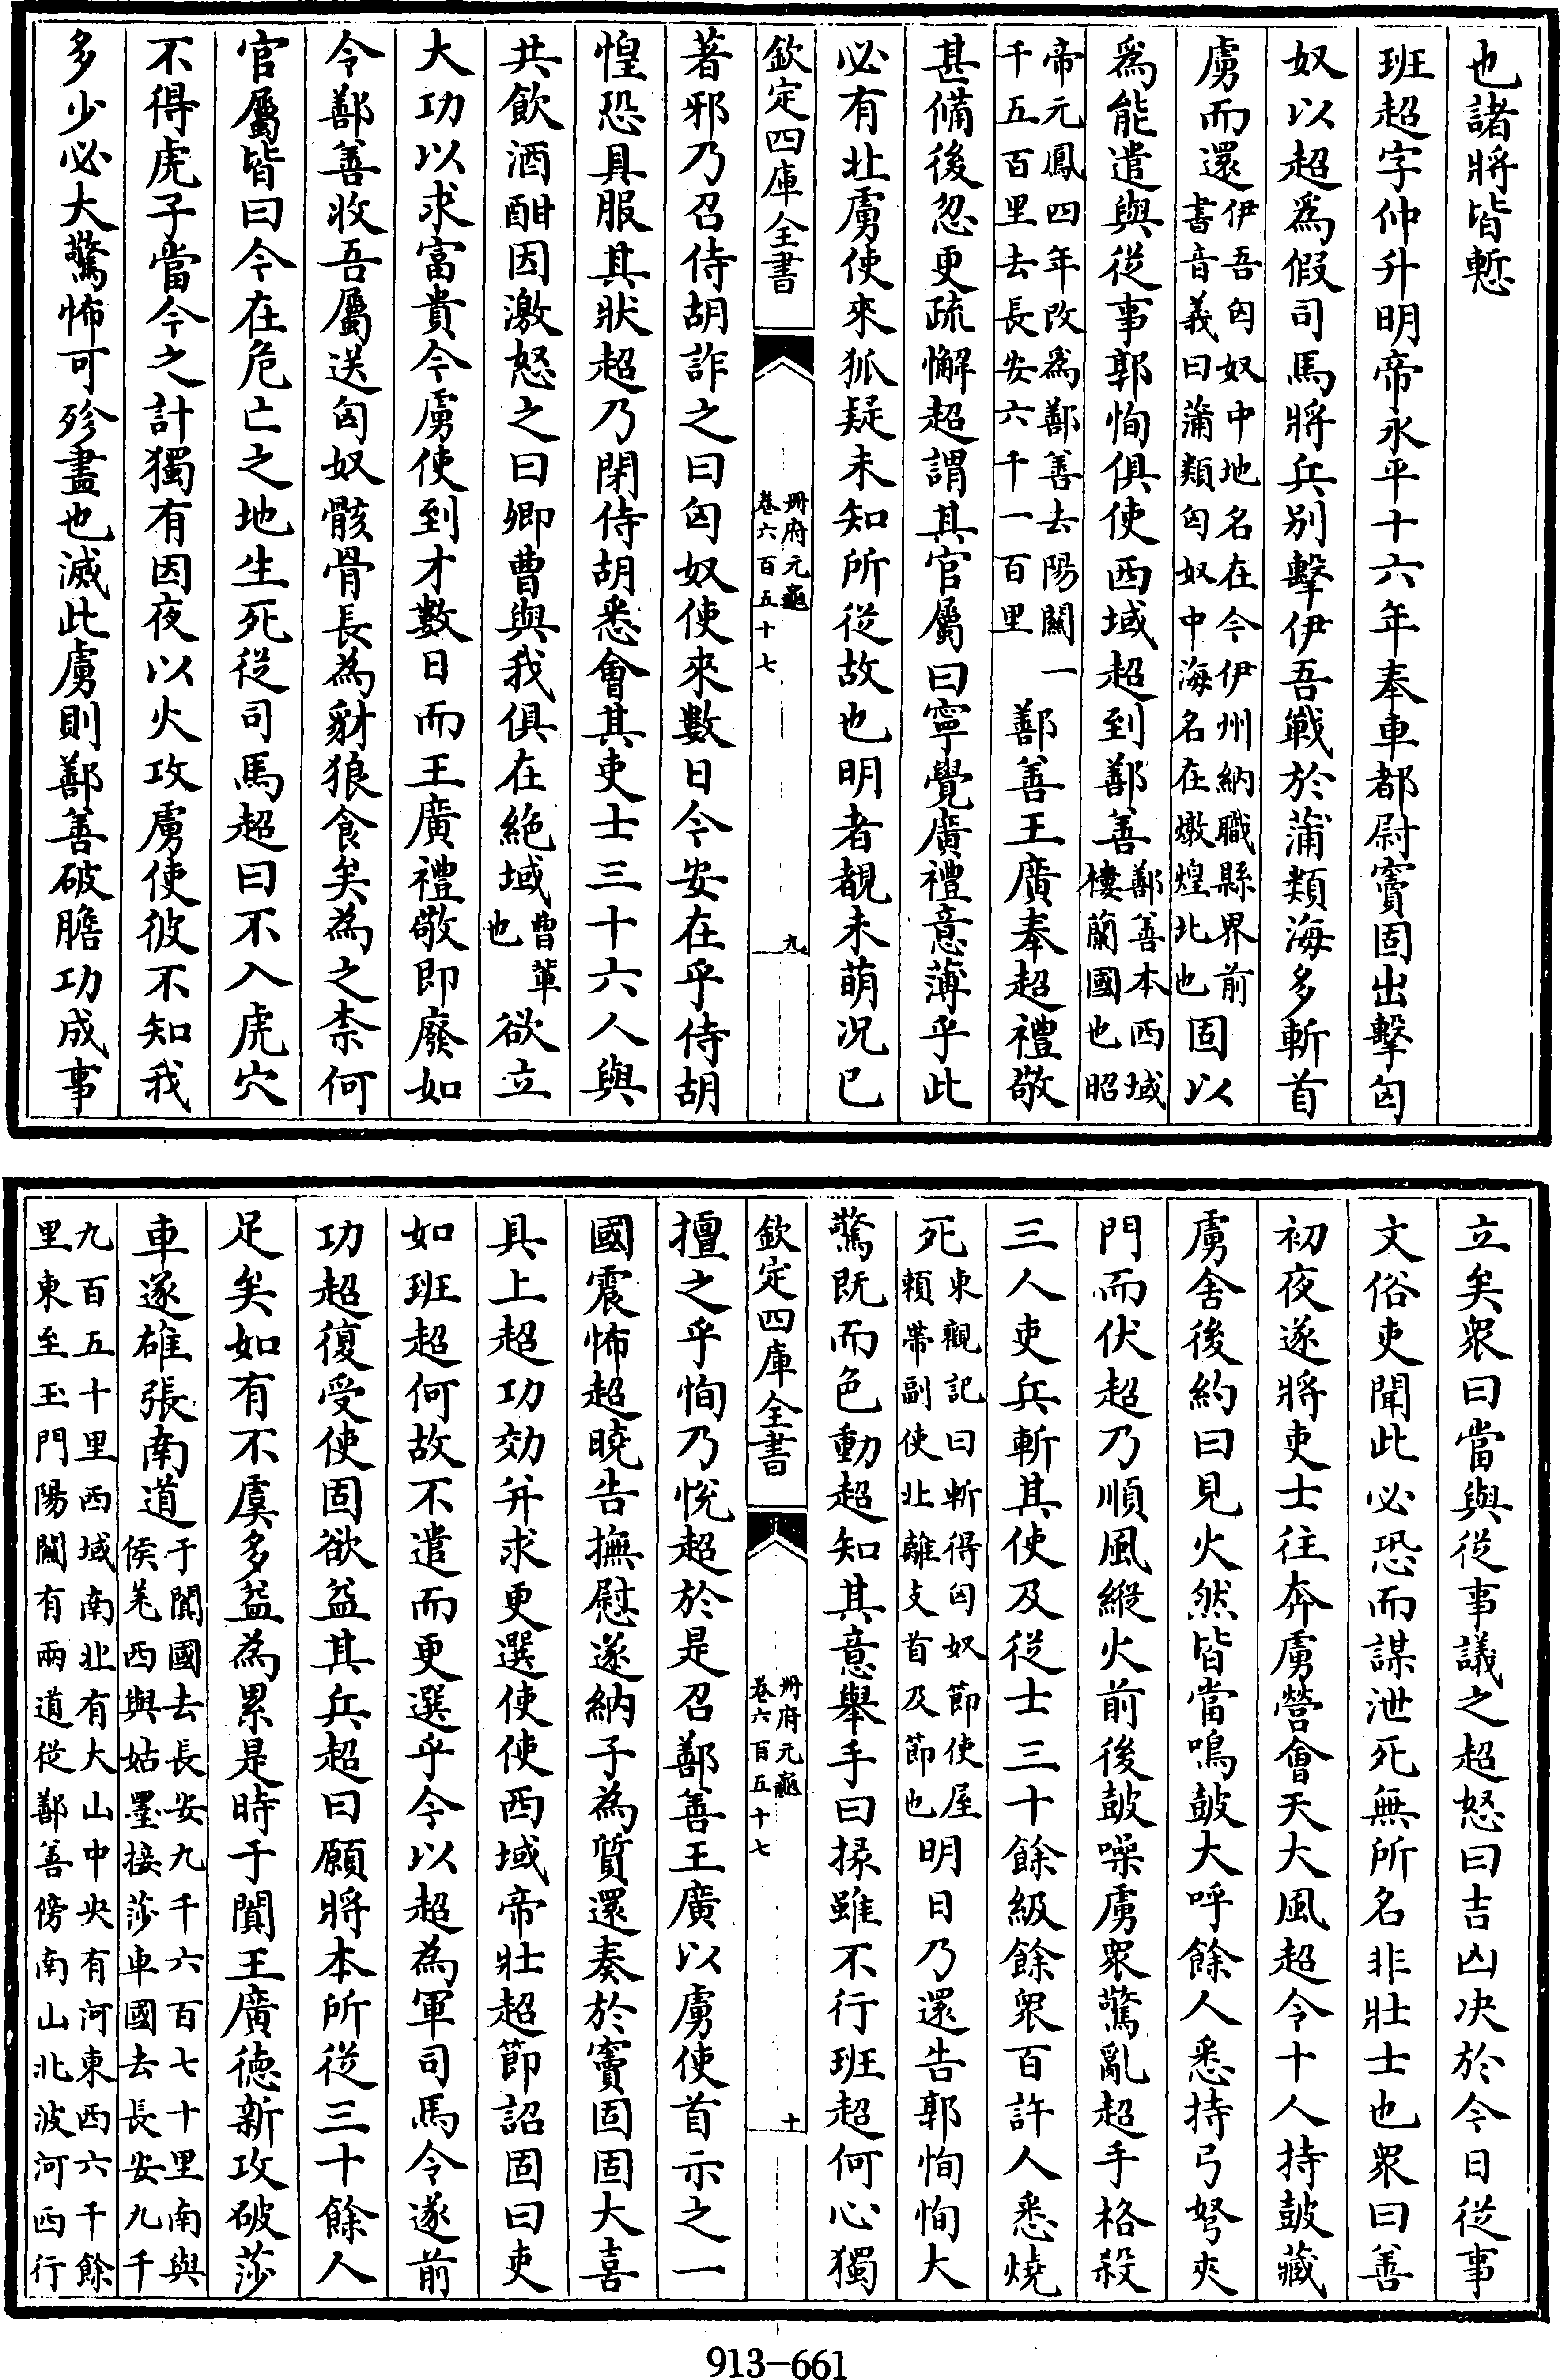 也諸將皆慙
班超字仲升明帝永平十六年奉車都尉竇固出擊匈
奴以超爲假司馬將兵别擊伊吾戰於蒲類海多斬首
虜而還伊吾匈奴中地名在今伊州納職縣界前書音義曰蒲類匈奴中海名在燉煌北也固以
爲能遣與從事郭恂俱使西域超到鄯善鄯善本西域樓蘭國也昭
帝元鳳四年改爲鄯善去陽關一千五百里去長安六千一百里鄯善王廣奉超禮敬
甚備後忽更疏懈超謂其官屬曰寧覺廣禮意薄乎此
必有北虜使來狐疑未知所從故也明者覩未萌况已
欽定四庫全書
冊府元龜
卷六百五十七
九
著邪乃召侍胡詐之曰匈奴使來數日今安在乎侍胡
惶恐具服其狀超乃閉侍胡悉會其吏士三十六人與
共飲酒酣因激怒之曰卿曹與我俱在絶域曹輩也欲立
大功以求富貴今虜使到才數日而王廣禮敬即廢如
令鄯善收吾屬送匈奴骸骨長為豺狼食矣為之柰何
官屬皆曰今在危亡之地生死從司馬超曰不入虎穴
不得虎子當今之計獨有因夜以火攻虜使彼不知我
多少必大驚怖可殄盡也滅此虜則鄯善破膽功成事
立矣衆曰當與從事議之超怒曰吉凶决於今日從事
文俗吏聞此必恐而謀泄死無所名非壯士也衆曰善
初夜遂將吏士往奔虜營會天大風超令十人持鼓藏
虜舍後約曰見火然皆當鳴鼓大呼餘人悉持弓弩夾
門而伏超乃順風縱火前後鼓噪虜衆驚亂超手格殺
三人吏兵斬其使及從士三十餘級餘衆百許人悉燒
死東觀記曰斬得匈奴節使屋賴帶副使北離支首及節也明日乃還告郭恂恂大
驚既而色動超知其意舉手曰掾雖不行班超何心獨
欽定四庫全書
冊府元龜
卷六百五十七
十
擅之乎恂乃悅超於是召鄯善王廣以虜使首示之一
國震怖超曉告撫慰遂納子為質還奏於竇固固大喜
具上超功効并求更選使使西域帝壯超節詔固曰吏
如班超何故不遣而更選乎今以超為軍司馬令遂前
功超復受使固欲益其兵超曰願將本所從三十餘人
足矣如有不虞多益為累是時于闐王廣德新攻破莎
車遂雄張南道于闐國去長安九千六百七十里南與侯羌西與姑墨接莎車國去長安九千
九百五十里西域南北有大山中央有河東西六千餘里東至玉門陽關有兩道從鄯善傍南山北波河西行
913-661